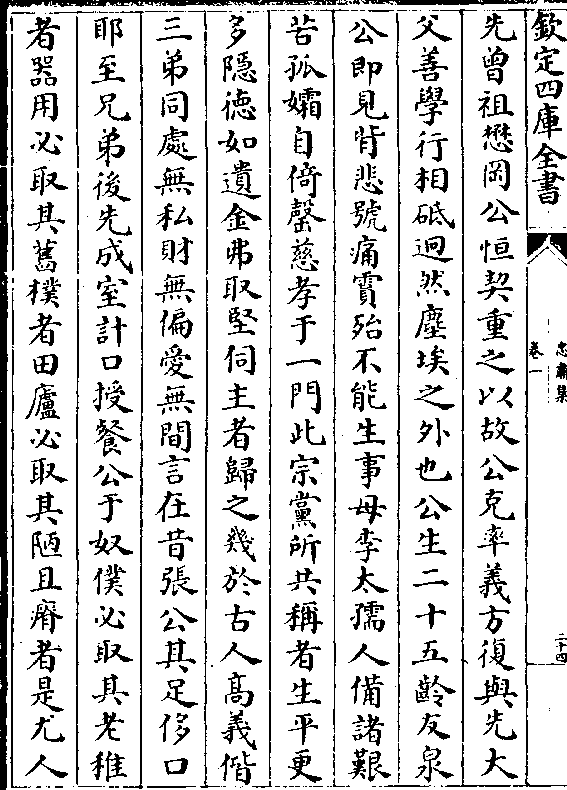 欽定四庫全書
忠肅集
卷一
二十四
先曾祖懋岡公恒契重之以故公克率義方復與先大
父善學行相砥迥然塵埃之外也公生二十五齡友泉
公即見背悲號痛霣殆不能生事母李太孺人備諸艱
苦孤孀自倚罄慈孝于一門此宗黨所共稱者生平更
多隱徳如遺金弗取堅伺主者歸之幾於古人髙義偕
三弟同處無私財無偏愛無間言在昔張公其足侈口
耶至兄弟後先成室計口授餐公于奴僕必取其老稚
者器用必取其舊樸者田廬必取其陋且瘠者是尤人